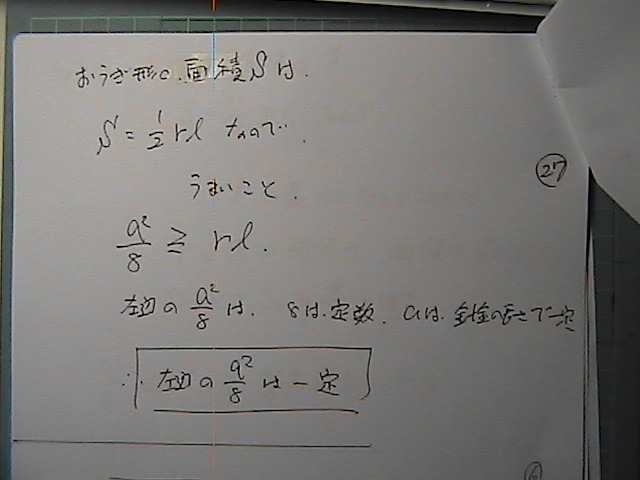 おうぎ形の面積Sは.
S = 1/2 rl なので.
うまいこと.
㉗
a²/8 ≧ rl.
左辺の a²/8 は. 8は.定数. aは.針金の長さで一定
∴ 左辺の a²/8 は一定